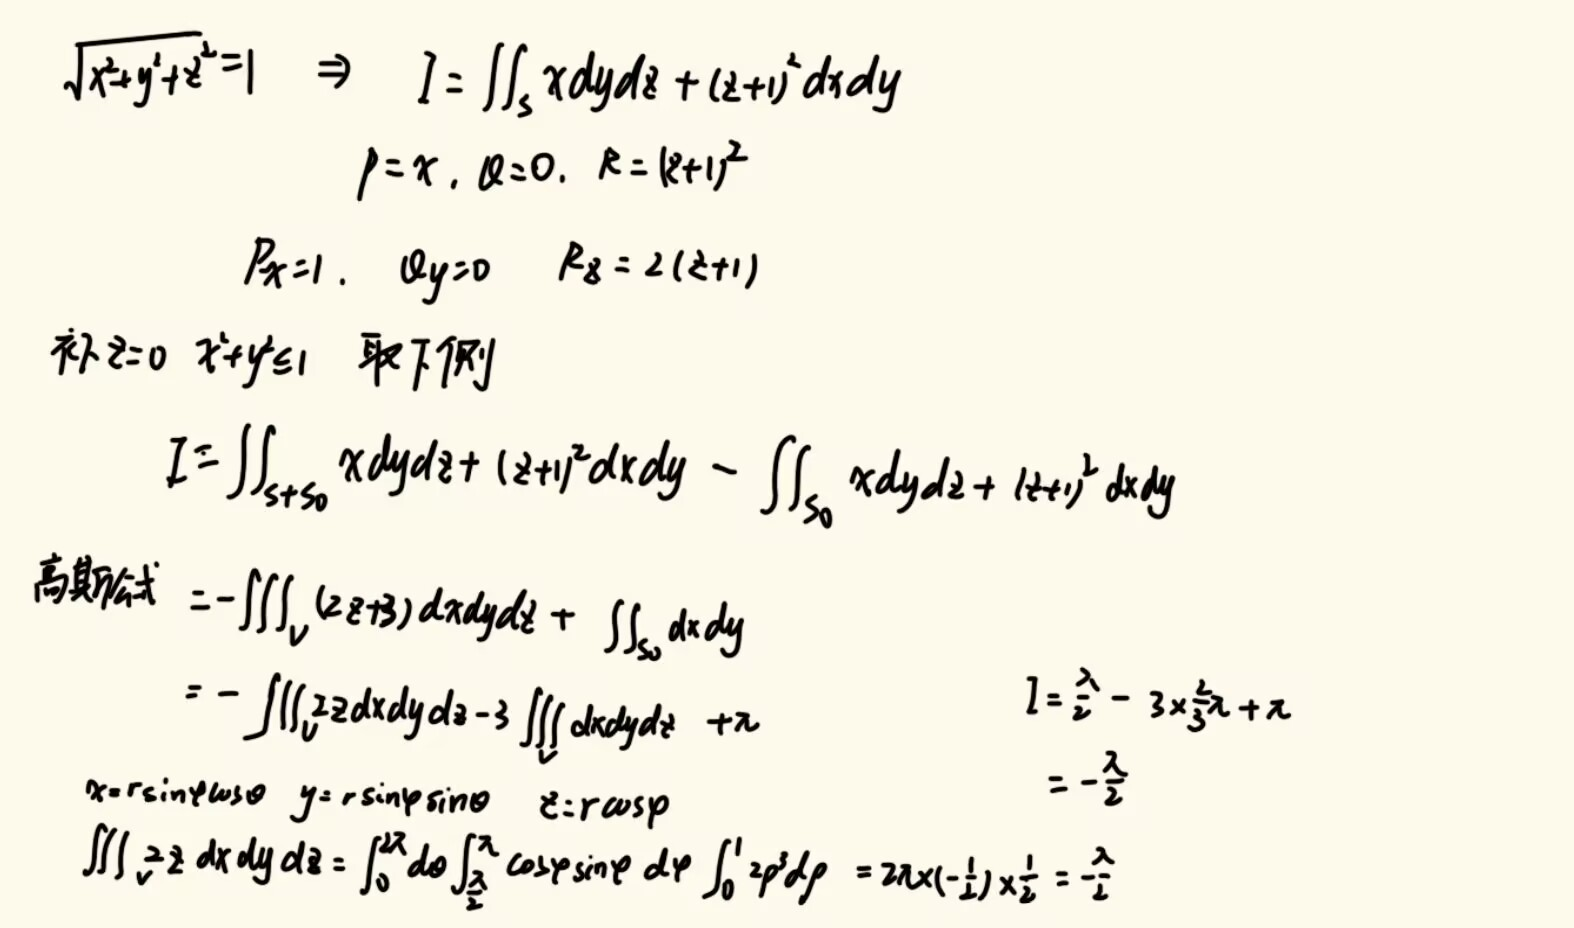 √(x²+y²+z²)=1 ⇒ I=∬_S xdydz+(z+1)²dxdy
P=x. Q=0. R=(z+1)²
Px=1. Qy=0 Rz=2(z+1)
补z=0 x²+y²≤1 取下侧
I=∬_{S+S₀} xdydz+(z+1)²dxdy - ∬_{S₀} xdydz+(z+1)²dxdy
高斯公式 =-∭_V (2z+3)dxdydz+ ∬_{S₀} dxdy
=-∭_V 2zdxdydz-3∭_V dxdydz +π
I=π/2 - 3×2/3π+π
=-π/2
x=rsinφcosθ y=rsinφsinθ z=rcosφ
∭_V 2z dxdydz=∫_0^{2π}dθ∫_{π/2}^{π}cosφsinφ dφ∫_0^1 2ρ³dρ =2π×(-1/2)×1/2=-π/2